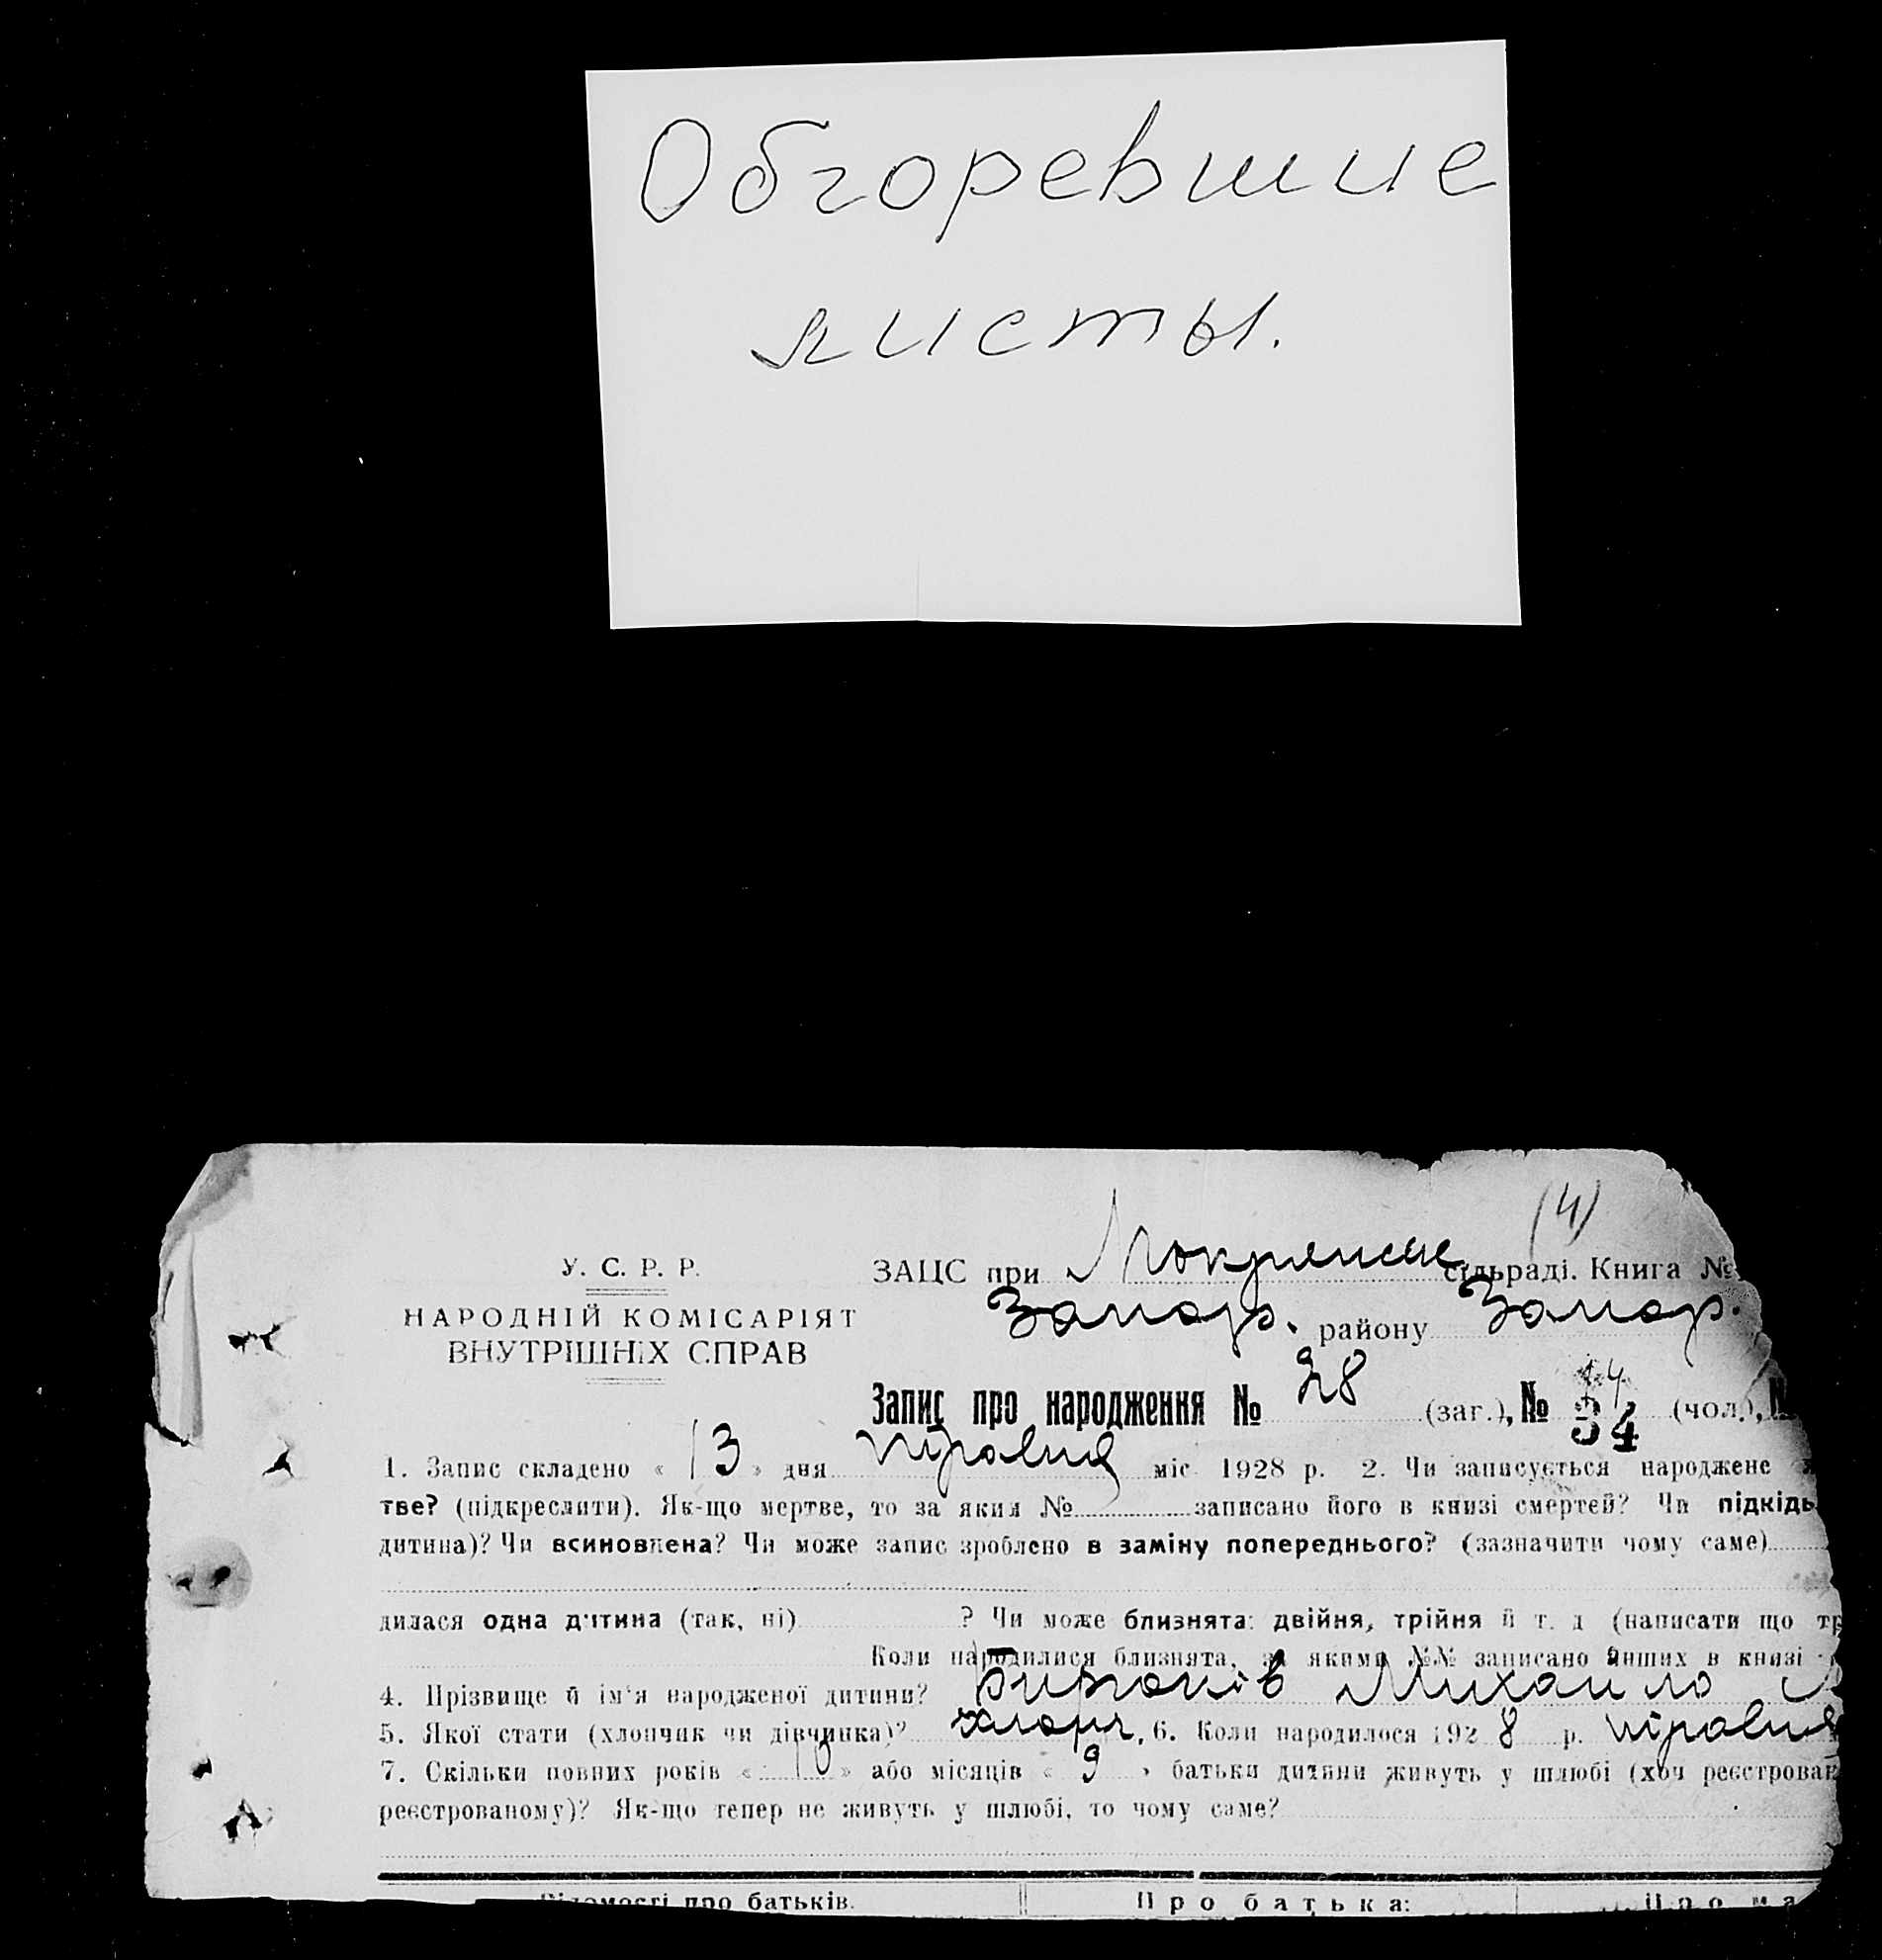 Обгоревшие
листы.
(4)
У. С. Р. Р.
НАРОДНІЙ КОМІСАРІЯТ
ВНУТРІШНІХ СПРАВ
ЗАЦС при сільраді. Книга №
Запор. району Запор.
Запис про народження № 28 (заг.), № 34 (чол.),
1. Запис складено « 13 » дня травня міс. 1928 р. 2. Чи записується народжене
тве? (підкреслити). Як-що мертве, то за яким № записано його в книзі смертей? Чи підкідь
дитина)? Чи всиновлена? Чи може запис зроблено в заміну попереднього? (зазначити чому саме)
дилася одна дитина (так, ні) ? Чи може близнята: двійня, трійня й т. д (написати що тр
Коли народилися близнята, за якими №№ записано инших в книзі
4. Прізвище й ім'я народженої дитини? Михайло
5. Якої стати (хлопчик чи дівчинка)? хлопч. 6. Коли народилося 1928 р. травня
7. Скільки повних років « 10 » або місяців « 9 » батьки дитини живуть у шлюбі (хоч реєстрован
реєстрованому)? Як-що тепер не живуть у шлюбі, то чому саме?
Відомості про батьків. Про батька: Про ма